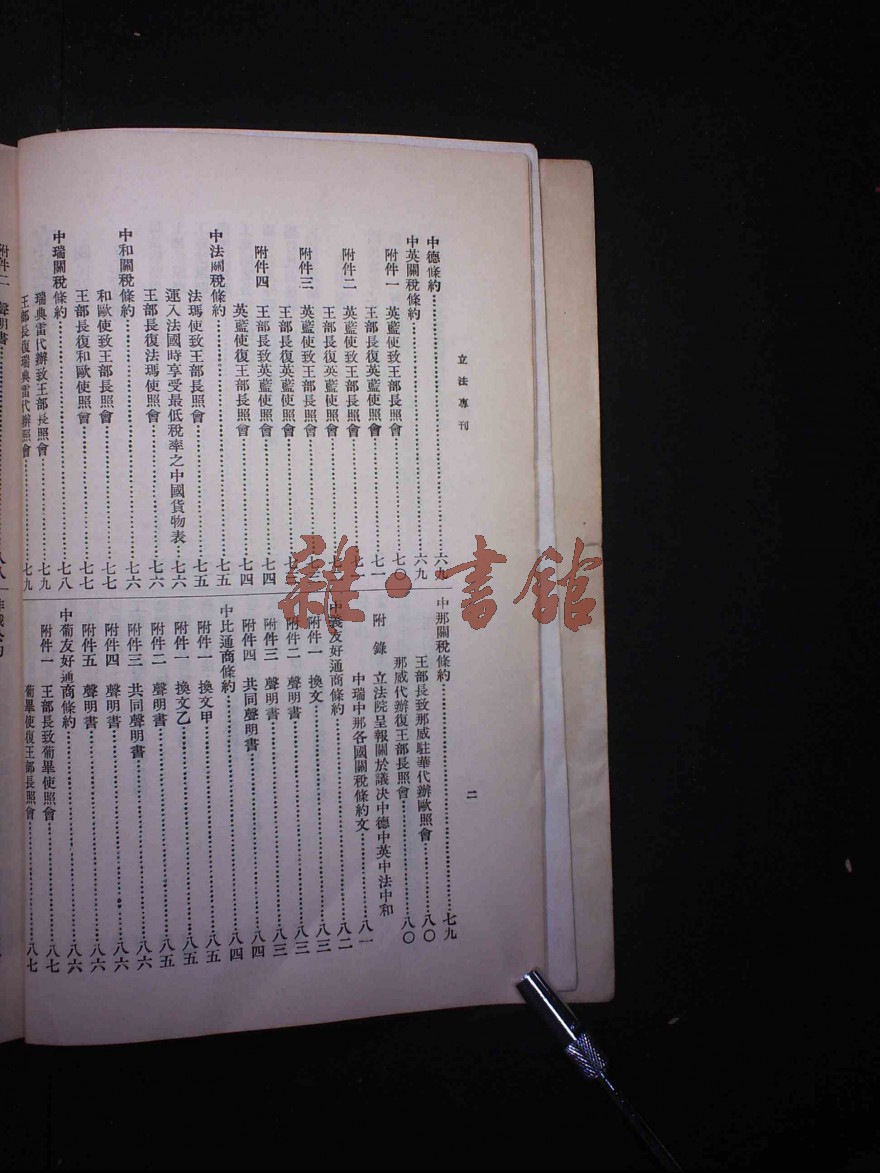 立法專刊
二
中德條約…六九
中英關稅條約…六九
附件一 英藍使致王部長照會…七〇
王部長復英藍使照會…七一
附件二 英藍使致王部長照會
王部長復英藍使照會
附件三 英藍使致王部長照會
王部長復英藍使照會
附件四 王部長致英藍使照會…七四
英藍使復王部長照會…七四
中法關稅條約…七五
法瑪使致王部長照會…七五
運入法國時享受最低稅率之中國貨物表…七六
王部長復法瑪使照會…七六
中和關稅條約…七六
和歐使致王部長照會…七七
王部長復和歐使照會…七七
中瑞關稅條約…七八
瑞典雷代辦致王部長照會…七九
王部長復瑞典雷代辦照會…七九
中那關稅條約…七九
王部長致那威駐華代辦歐照會…八〇
那威代辦復王部長照會…八〇
附錄 立法院呈報關於議決中德中英中法中和
中瑞中那各國關稅條約文…八一
中義友好通商條約…八二
附件一 換文…八三
附件二 聲明書…八三
附件三 聲明書…八三
附件四 共同聲明書…八四
中比通商條約…八四
附件一 換文甲…八五
附件一 換文乙…八五
附件二 聲明書…八五
附件三 共同聲明書…八六
附件四 聲明書…八六
附件五 聲明書…八六
中葡友好通商條約…八六
附件一 王部長致葡畢使照會…八七
葡畢使復王部長照會…八七
附件二 聲明書
雜·書館